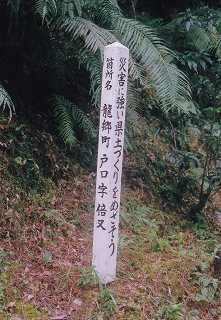 災害に強い県土づくりをめざそう
箇所名 龍郷町 戸口字 倍又